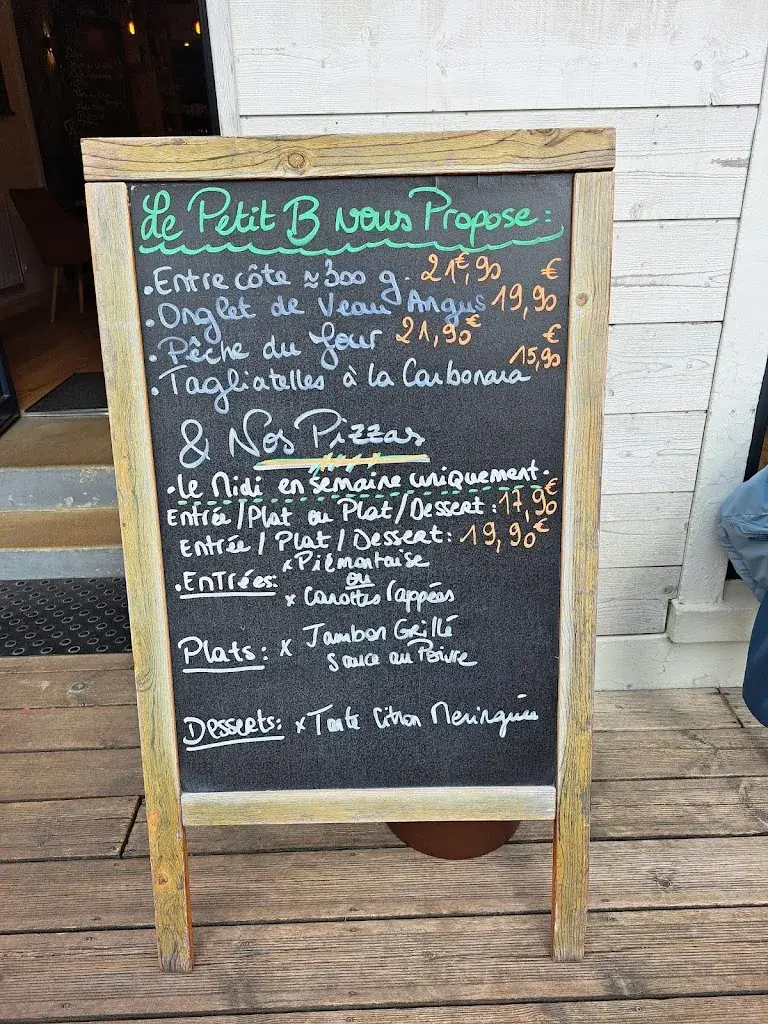 Le Petit B vous Propose :
. Entrecôte ≈ 300 g. 21€,90
. Onglet de Veau Angus 19,90 €
. Pêche du Jour 21,90 €
. Tagliatelles à la Carbonara 15,90 €
& Nos Pizzas
. Le Midi en semaine uniquement .
Entrée / Plat ou Plat / Dessert : 17,90 €
Entrée / Plat / Dessert : 19,90 €
. Entrées : x Piémontaise
ou
x Carottes rappées
Plats : x Jambon Grillé
Sauce au Poivre
Desserts : x Tarte Citron Meringuée